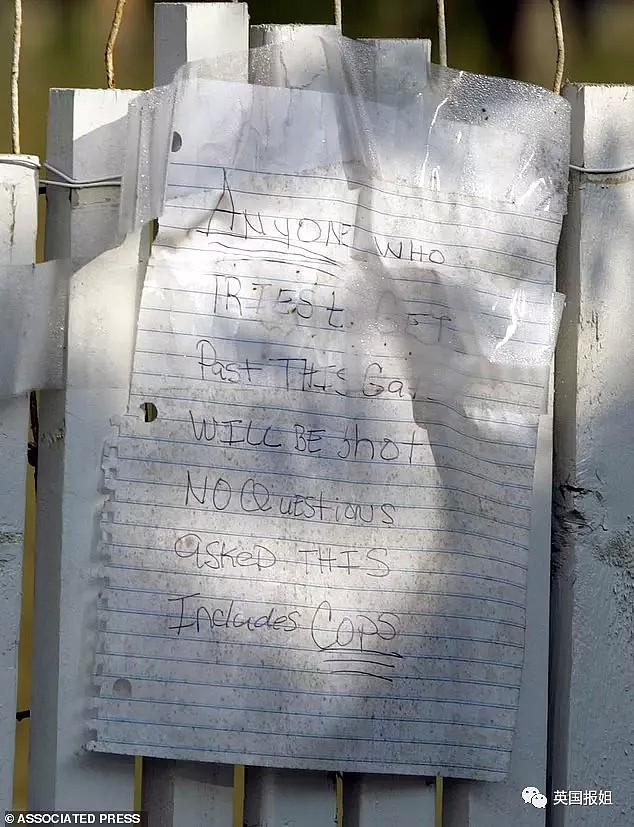 ANyONE WHO
TRIES GET
Past THIS
WILL BE shot
NO QUEStions
asKeD THIS
Includes Cops
© ASSOCIATED PRESS
英国报姐